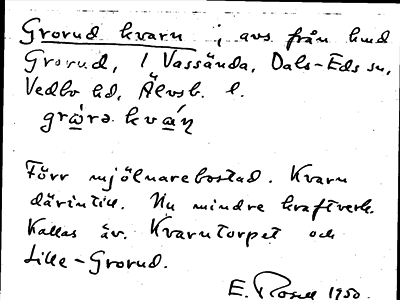 Grorud kvarn ; avs. från hmd
Grorud, 1 Vassända, Dals-Eds sn,
Vedbo hd, Älvsb. l.
Förr mjölnarebostad. Kvarn
därintill. Nu mindre kraftverk.
Kallas äv. Kvarntorpet och
Lille-Grorud.
E. Rosell 1950.